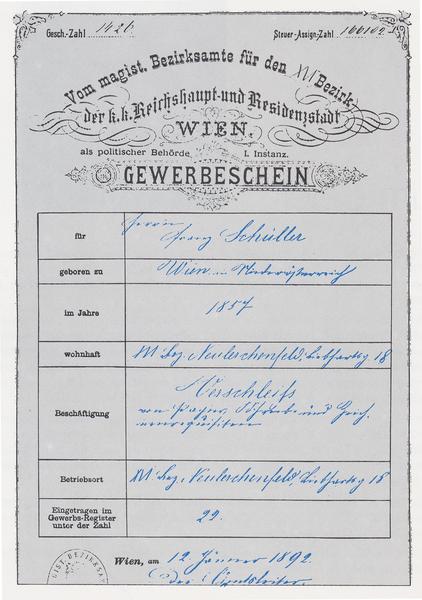 Gesch.-Zahl 1426. Steuer-Assign.-Zahl 166102
Vom magist. Bezirksamte für den XVI Bezirk
der k.k. Reichshaupt-und Residenzstadt
WIEN.
als politischer Behörde I. Instanz.
GEWERBESCHEIN
für Herrn
Franz Schüller
geboren zu Wien in Niederösterreich
im Jahre 1857
wohnhaft XVI Bez. Neulerchenfeld, Liebhartsg 18
Verschleiß
Beschäftigung von Papier, Schreib- und Zeich.
nenrequisiten
Betriebsort XVI Bez. Neulerchenfeld, Liebhartsg 18
Eingetragen im
Gewerbs-Register 29.
unter der Zahl
Wien, am 12. Jänner 1892.
Der Amtsleiter